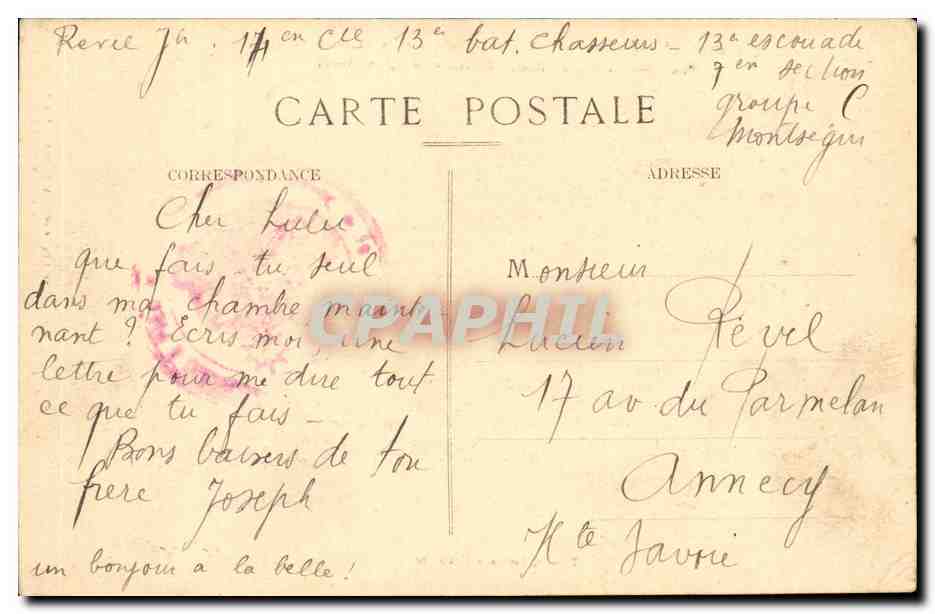 Revil Jh. 14en Cie 13en bat. Chasseurs - 13en escouade
7en section
groupe C
Montségur
CARTE POSTALE
CORRESPONDANCE
ADRESSE
Cher Lulu
que fais-tu seul
dans ma chambre mainte-
nant ? Écris moi une
lettre pour me dire tout
ce que tu fais -
Bons baisers de ton
frère Joseph
un bonjour à la belle !
Monsieur
Lucien Révil
17 av. du Parmelan
Annecy
Hte Savoie
CPAPHIL